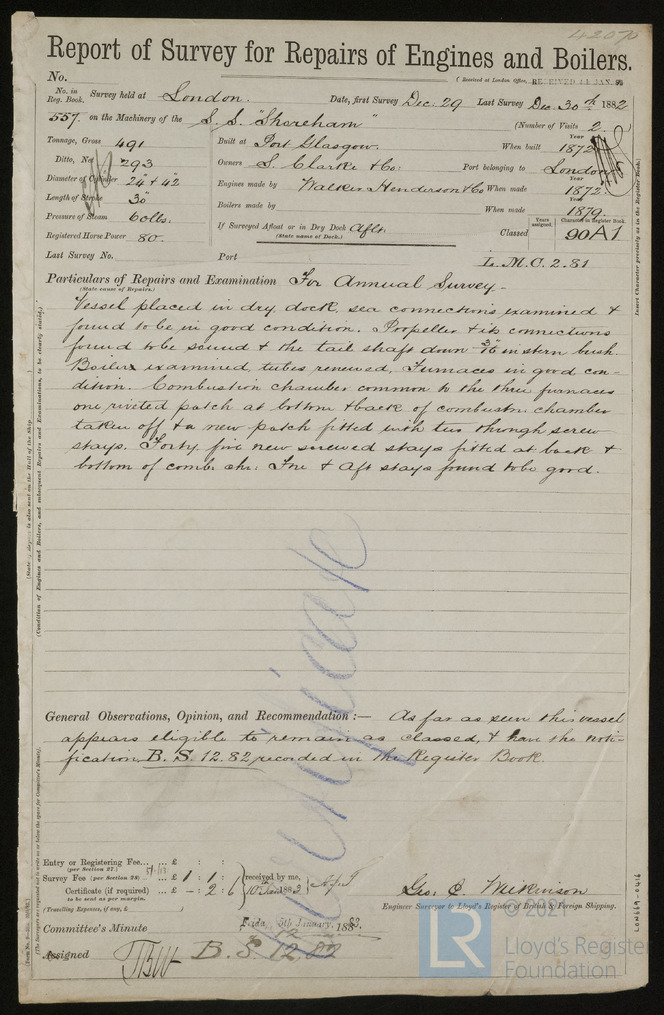 42070
Report of Survey for Repairs of Engines and Boilers.
No. (Received at London Office, RECEIVED 11 JAN. 83
No. in Reg. Book. Survey held at London. Date, first Survey Dec. 29 Last Survey Dec. 30th 1882
557. on the Machinery of the S.S. "Shoreham" (Number of Visits 2
Tonnage, Gross 491 Built at Port Glasgow. When built Year 1872
Ditto, Net 293 Owners S. Clarke & Co: Port belonging to London
Diameter of Cylinder 24" & 42" Engines made by Walker Henderson & Co When made Year 1872.
Length of Stroke 30" Boilers made by When made Year 1879.
Pressure of Steam 60lbs. If Surveyed Afloat or in Dry Dock Aflt.
Registered Horse Power 80. (State name of Dock.) Classed Years assigned. Character in Register Book. 90A1
Last Survey No. Port L.M.C. 2.81
Particulars of Repairs and Examination For Annual Survey -
(State cause of Repairs.)
Vessel placed in dry dock, sea connections examined &
found to be in good condition. Propeller & its connections
found to be sound & the tail shaft down 3/16 in stern bush.
Boilers examined tubes renewed, Furnaces in good con-
dition. Combustion chamber common to the three furnaces
one riveted patch at bottom & back of combustn. chamber
taken off & a new patch fitted with two through screw
stays. Forty five new screwed stays fitted at back &
bottom of comb. chr: Fore & Aft stays found to be good.
General Observations, Opinion, and Recommendation:— As far as seen this vessel
appears eligible to remain as classed, & have the noti-
fication B.S. 12.82 recorded in the Register Book.
Entry or Registering Fee... £ : :
(per Section 27.)
Survey Fee (per Section 28) £ 1 : 1 : received by me,
Certificate (if required) ... £ - : 2 : 6 10th Jan 1883
to be sent as per margin.
(Travelling Expenses, if any, £
Geo. C. Milkinson
Engineer Surveyor to Lloyd's Register of British & Foreign Shipping.
Committee's Minute Friday, 5th January, 1883.
Assigned B.S. 12,82
Insert Character precisely as in the Register Book.
(Condition of Engines and Boilers, and subsequent Repairs and Examinations, to be clearly stated.)
LON669-0416
© 2021
LR
Lloyd's Register
Foundation